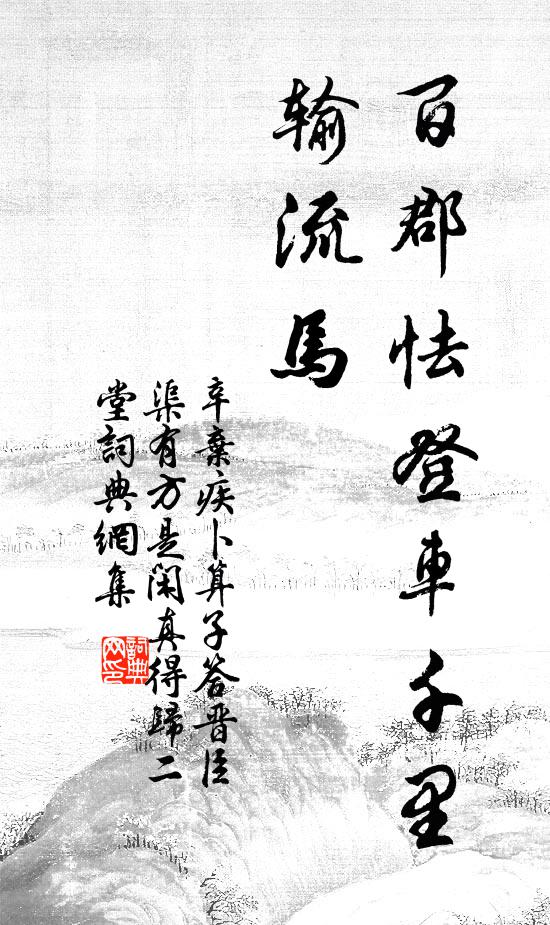 百郡怯登車千里
输流馬
辛棄疾卜算子答晋臣
渠有方是閑真得歸二
堂詞典網集
詞典
网印